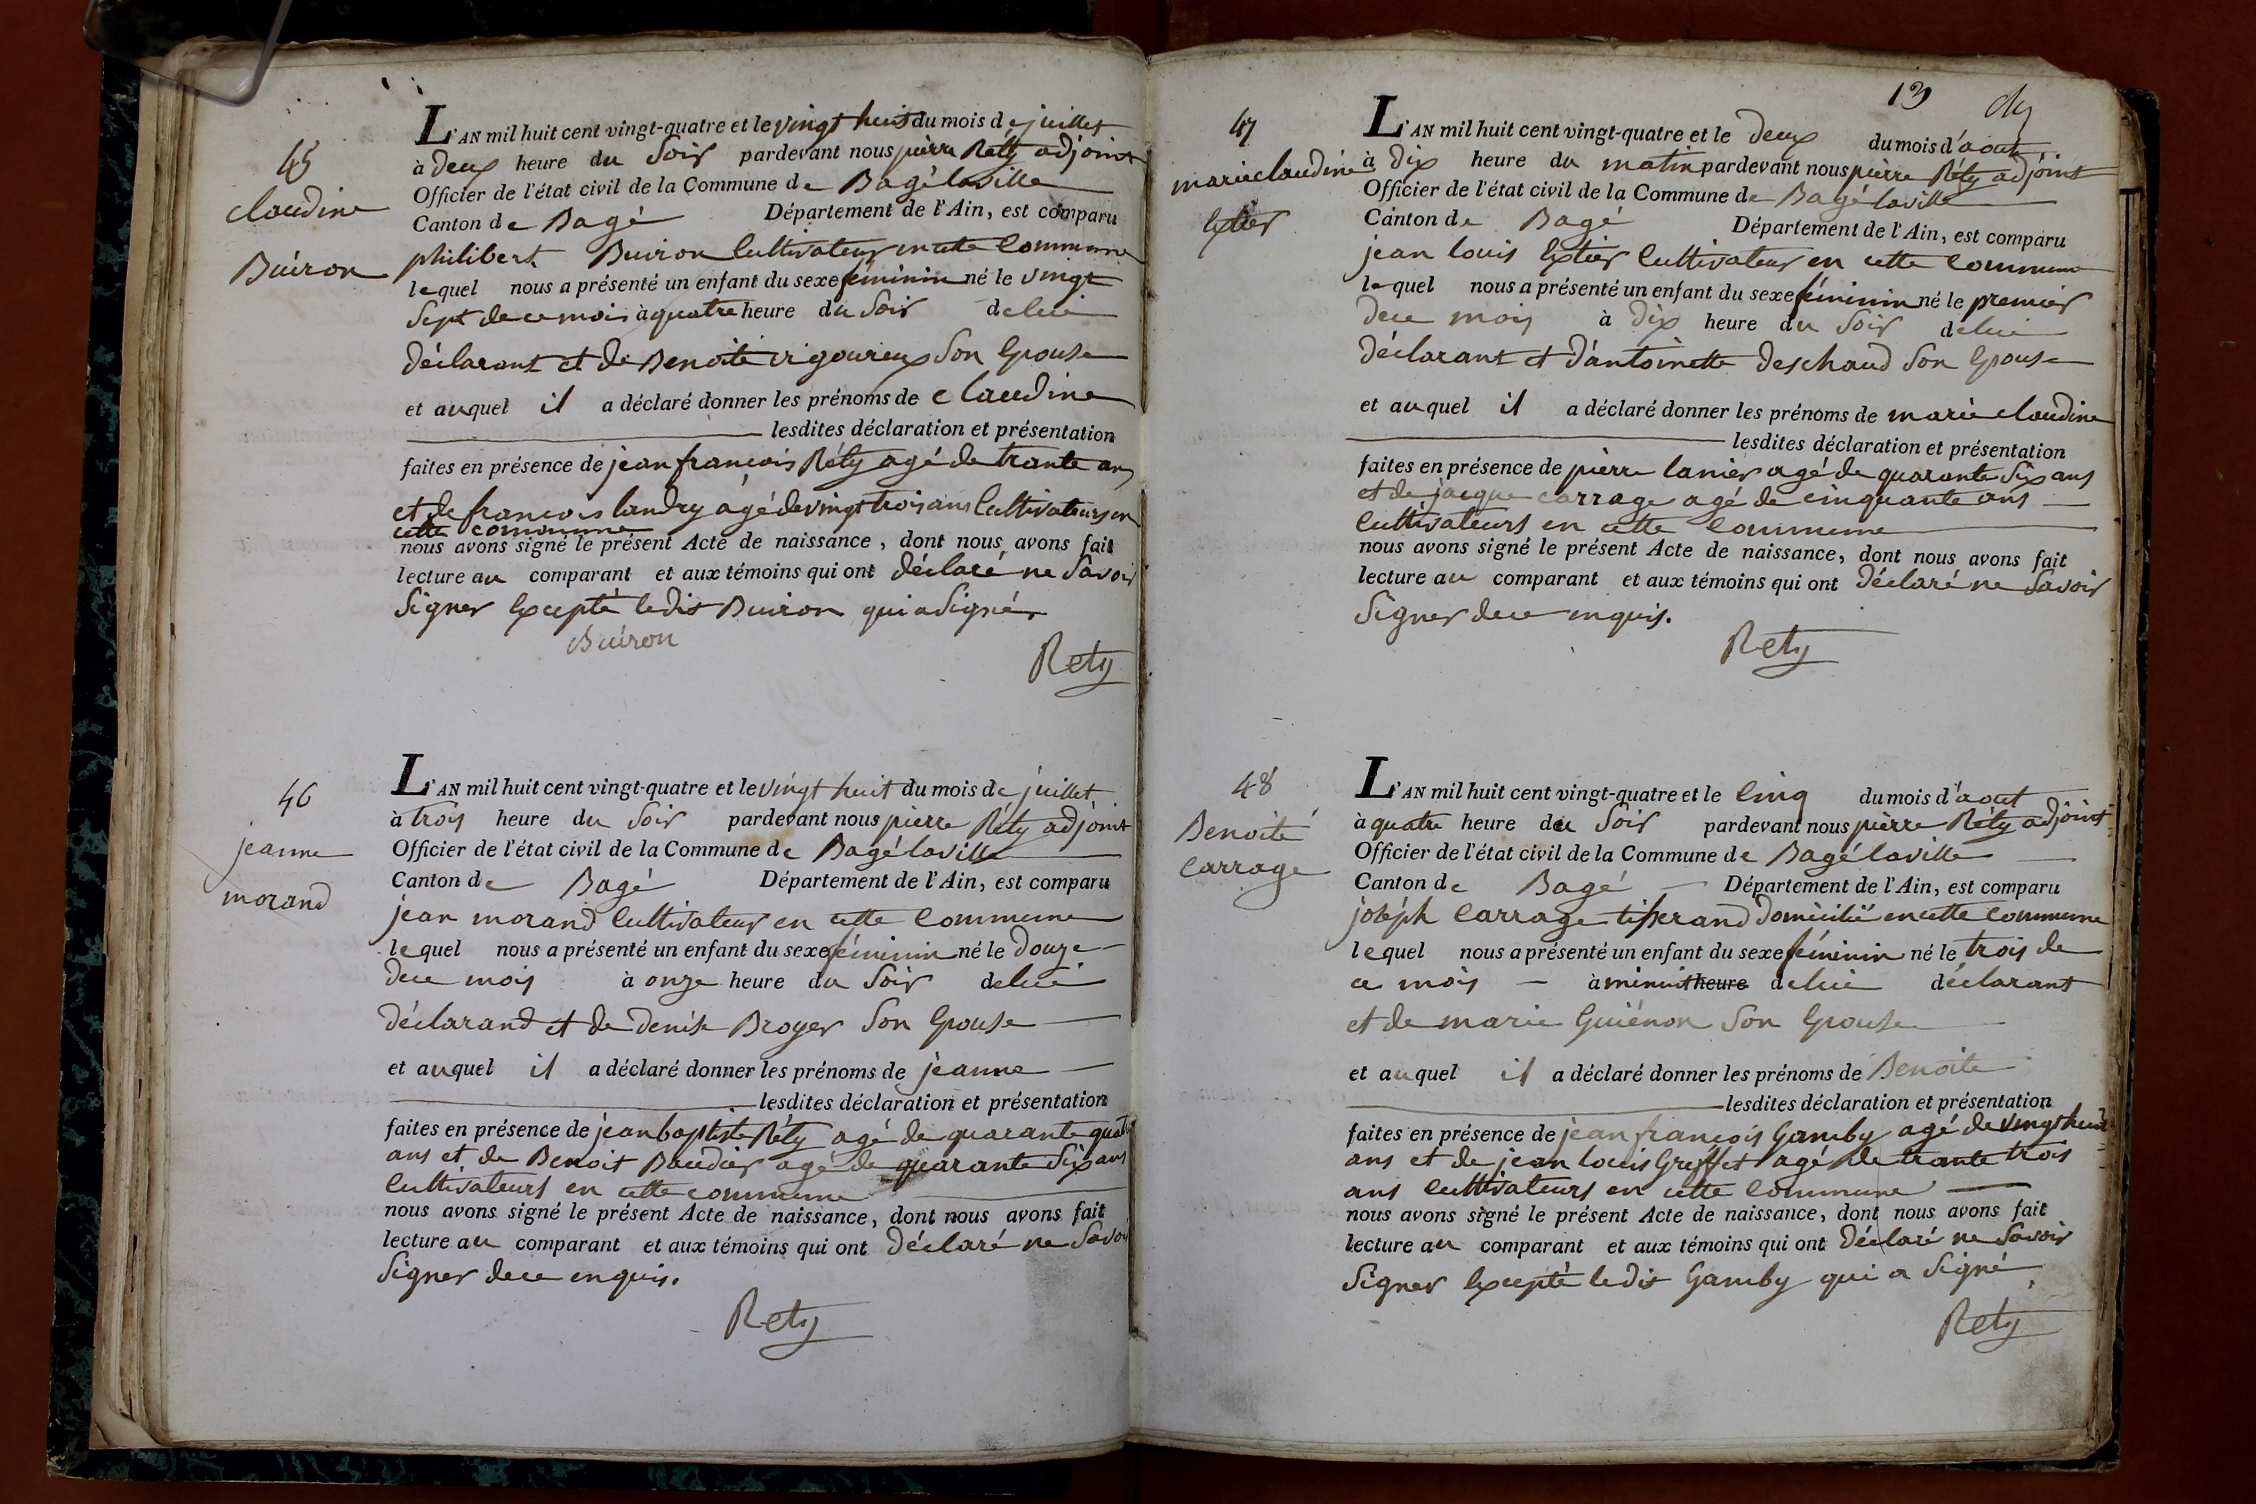 45
claudine
Buiron
L'AN mil huit cent vingt-quatre et le vingt huit du mois de juillet
à deux heure du Soir pardevant nous pierre Réty adjoint
Officier de l'état civil de la Commune de Bagé laville
Canton de Bagé Département de l'Ain, est comparu
philibert Buiron Cultivateur en cette Commune
lequel nous a présenté un enfant du sexe féminin né le vingt
Sept de ce mois à quatre heure du Soir de lui
déclarant et de Benoite vigoureux Son Epouse
et auquel il a déclaré donner les prénoms de claudine
lesdites déclaration et présentation
faites en présence de jean francois Réty agé de trante ans
et de francois landry agé de vingt trois ans Cultivateurs en
cette commune
nous avons signé le présent Acte de naissance, dont nous avons fait
lecture au comparant et aux témoins qui ont déclaré ne Savoir
Signer Excepté ledit Buiron qui a Signé
Buiron
Rety
46
jeanne
morand
L'AN mil huit cent vingt-quatre et le vingt huit du mois de juillet
à trois heure du Soir pardevant nous pierre Réty adjoint
Officier de l'état civil de la Commune de Bagé laville
Canton de Bagé Département de l'Ain, est comparu
jean morand Cultivateur en cette Commune
lequel nous a présenté un enfant du sexe féminin né le douze
de ce mois à onze heure du Soir de lui
déclarand et de denise Broyer Son Epouse
et auquel il a déclaré donner les prénoms de jeanne
lesdites déclaration et présentation
faites en présence de jean baptiste Réty agé de quarante quatre
ans et de Benoit Baudier agé de quarante Six ans
Cultivateurs en cette commune
nous avons signé le présent Acte de naissance, dont nous avons fait
lecture au comparant et aux témoins qui ont déclaré ne Savoir
Signer de ce enquis.
Rety
13
47
marie claudine
Extier
L'AN mil huit cent vingt-quatre et le deux du mois d'aout
à dix heure du matin pardevant nous pierre Réty adjoint
Officier de l'état civil de la Commune de Bagé laville
Canton de Bagé Département de l'Ain, est comparu
jean louis Extier Cultivateur en cette Commune
lequel nous a présenté un enfant du sexe féminin né le premier
de ce mois à dix heure du Soir de lui
déclarant et d'antoinette deschaud Son Epouse
et auquel il a déclaré donner les prénoms de marie claudine
lesdites déclaration et présentation
faites en présence de pierre lanier agé de quarante Six ans
et de jacque carrage agé de cinquante ans
Cultivateurs en cette Commune
nous avons signé le présent Acte de naissance, dont nous avons fait
lecture au comparant et aux témoins qui ont déclaré ne Savoir
Signer de ce enquis.
Rety
48
Benoite
Carrage
L'AN mil huit cent vingt-quatre et le Cinq du mois d'aout
à quatre heure du Soir pardevant nous pierre Réty adjoint
Officier de l'état civil de la Commune de Bagé laville
Canton de Bagé Département de l'Ain, est comparu
joseph Carrage tisserand domicilié en cette commune
lequel nous a présenté un enfant du sexe féminin né le trois de
ce mois à minuit heure de lui déclarant
et de marie Guiénon Son Epouse
et auquel il a déclaré donner les prénoms de Benoite
lesdites déclaration et présentation
faites en présence de jean francois Gamby agé de vingt huit
ans et de jean louis Greffet agé de trante trois
ans Cultivateurs en cette Commune
nous avons signé le présent Acte de naissance, dont nous avons fait
lecture au comparant et aux témoins qui ont déclaré ne Savoir
Signer Excepté ledit Gamby qui a Signé
Rety